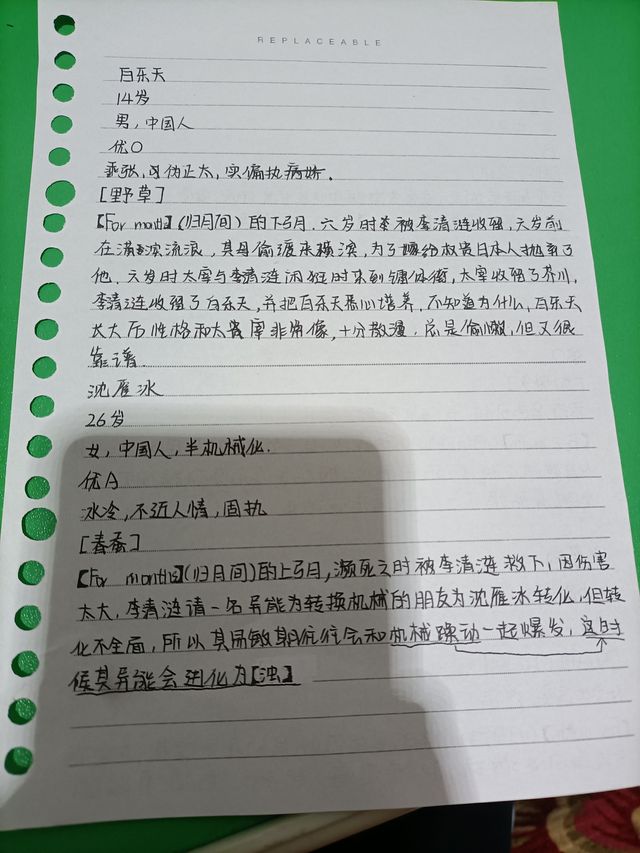 REPLACEABLE
白乐天
14岁
男,中国人
优O
乖张,易伪正太,实偏执病娇.
[野草]
【For month】(归月间)的下弓月.六岁时被李清涟收留,六岁前
在满滨流浪,其母偷渡来横滨,为了嫁给权贵日本人抛弃了
他.六岁时太宰与李清涟闲逛时来到镭体街,太宰收留了芥川,
李清涟收留了白乐天,并把白乐天悉心培养.不知道为什么,白乐天
长大后性格和太宰非常像,十分散漫.总是偷懒,但又很
靠谱.
沈雁冰
26岁
女,中国人,半机械化.
优A
冰冷,不近人情,固执
[春蚕]
【For months】(归月间)的上弓月,濒死之时被李清涟救下,因伤害
太大,李清涟请一名异能为转换机械的朋友为沈雁冰转化,但转
化不全面,所以其易敏期往往会和机械躁动一起爆发,这时
候其异能会进化为【浊】